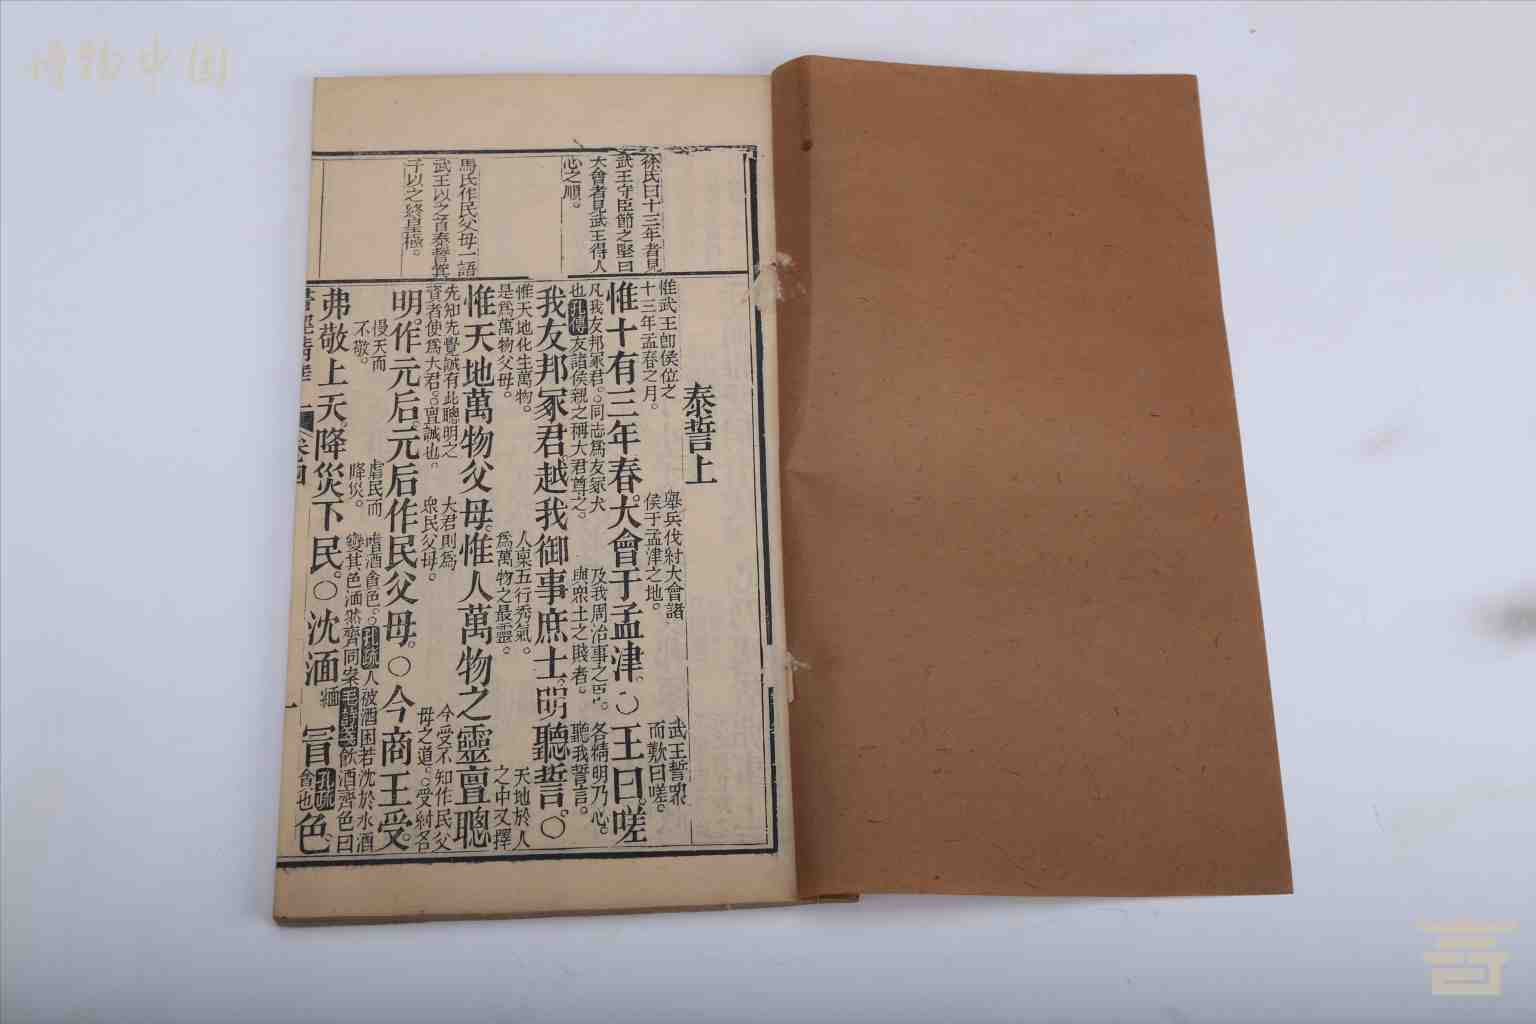 博物中国
徐氏曰十三年者見
武王守臣節之堅曰
大會者見武王得人
心之順。
馬氏作民父母一語
武王以之首泰誓箕
子以之終皇極。
泰誓上
惟武王卽侯位之
十三年孟春之月。
舉兵伐紂大會諸
侯于孟津之地。
武王誓衆
而歎曰嗟。
惟十有三年春。大會于孟津。○王曰。嗟
凡我友邦冢君。○同志爲友冢大
也孔傳友諸侯親之稱大君尊之。
及我周治事之臣。
與衆士之賤者。
各精明乃心。
聽我誓言。
我友邦冢君越我御事庶士。明聽誓。○
惟天地化生萬物。
是爲萬物父母。
人稟五行秀氣。
爲萬物之最靈。
天地於人
之中又擇
惟天地萬物父母。惟人萬物之靈亶聰
先知先覺誠有此聰明之
資者使爲大君。○亶誠也。
大君則爲
衆民父母。
今受不知作民父
母之道。○受紂名
明。作元后。元后作民父母。○今商王受。
慢天而
不敬。
虐民而
降災。
嗜酒貪色。○孔疏人被酒困若沈於水酒
變其色湎然齊同案毛詩箋飲酒齊色曰
湎
孔疏
貪也
弗敬上天。降災下民。○沈湎冒色。